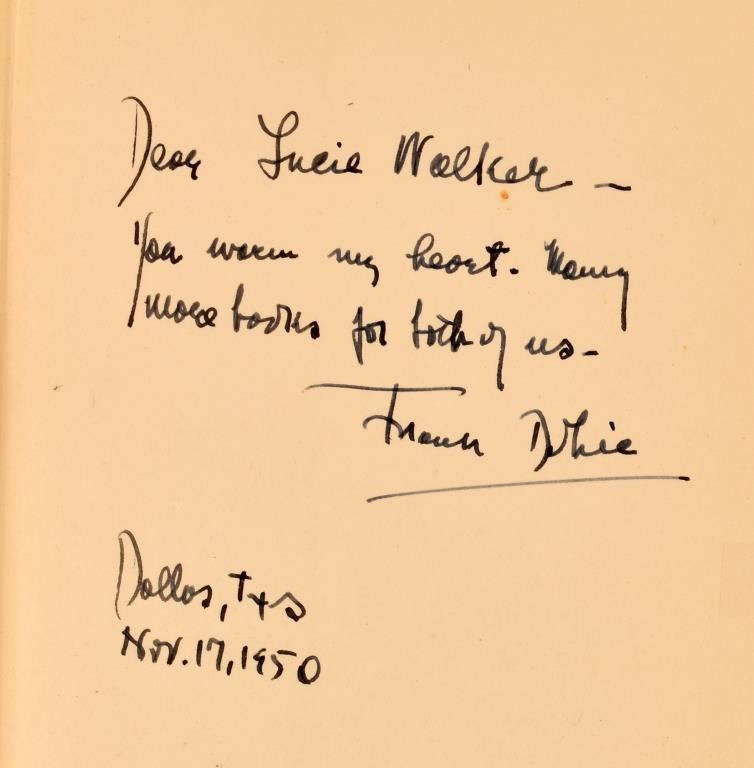 Dear Lucie Walker –
You warm my heart. Many
more books for both of us –
Frank Dobie
Dallas, Txs
Nov. 17, 1950